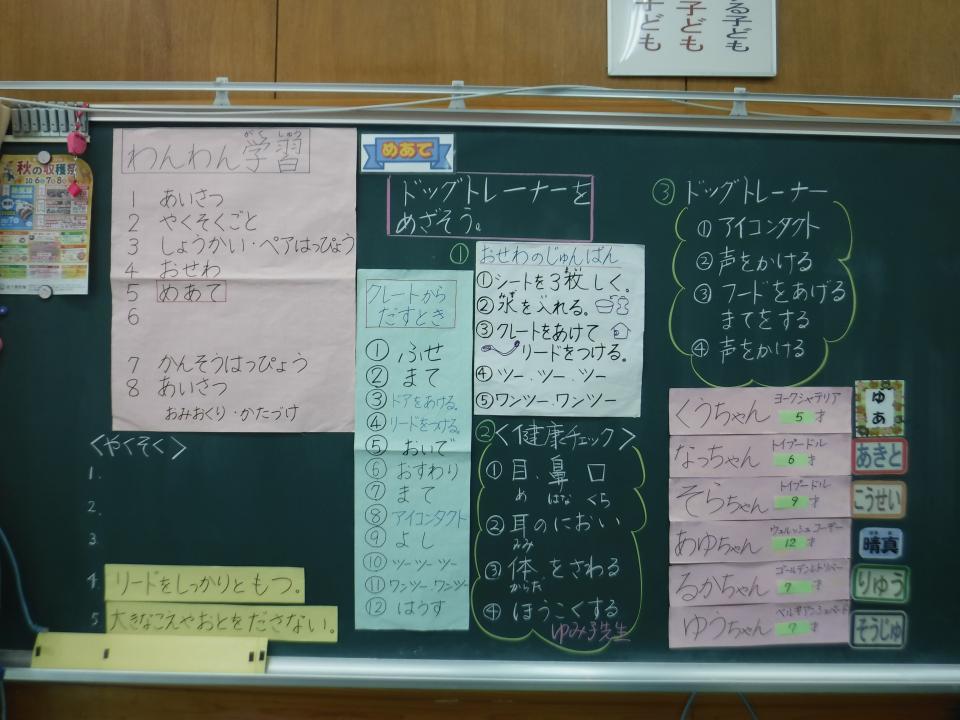 る子ども
子ども
子ども
秋の収穫祭
わんわん学習
がくしゅう
1 あいさつ
2 やくそくごと
3 しょうかい・ペアはっぴょう
4 おせわ
5 めあて
6
7 かんそうはっぴょう
8 あいさつ
おみおくり・かたづけ
<やくそく>
1.
2.
3.
4. リードをしっかりともつ。
5 大きなこえやおとをださない。
めあて
ドッグトレーナーを
めざそう。
クレートから
だすとき
① ふせ
② まて
③ ドアをあける。
④ リードをつける。
⑤ おいで
⑥ おすわり
⑦ まて
⑧ アイコンタクト
⑨ よし
⑩ ツー ツー ツー
⑪ ワンツー.ワンツー
⑫ はうす
① おせわのじゅんばん
①シートを3枚しく。
②水を入れる。
③クレートをあけて
リードをつける。
④ツー.ツー.ツー
⑤ワンツー.ワンツー
②<健康チェック>
① 目.鼻 口
め はな くち
② 耳のにおい
みみ
③ 体をさわる
からだ
④ ほうこくする
ゆみ子先生
③ ドッグトレーナー
① アイコンタクト
② 声をかける
③ フードをあげる
まてをする
④ 声をかける
くうちゃん ヨークシャテリア 5才 ゆあ
なっちゃん トイプードル 6才 あきと
そらちゃん トイプードル 9才 こうせい
あゆちゃん ウェルッシュコーギー 12才 晴真
るかちゃん ゴールデンレトリバー 7才 りゅう
ゆうちゃん ベルギアンシェパード 7才 そうじゅ